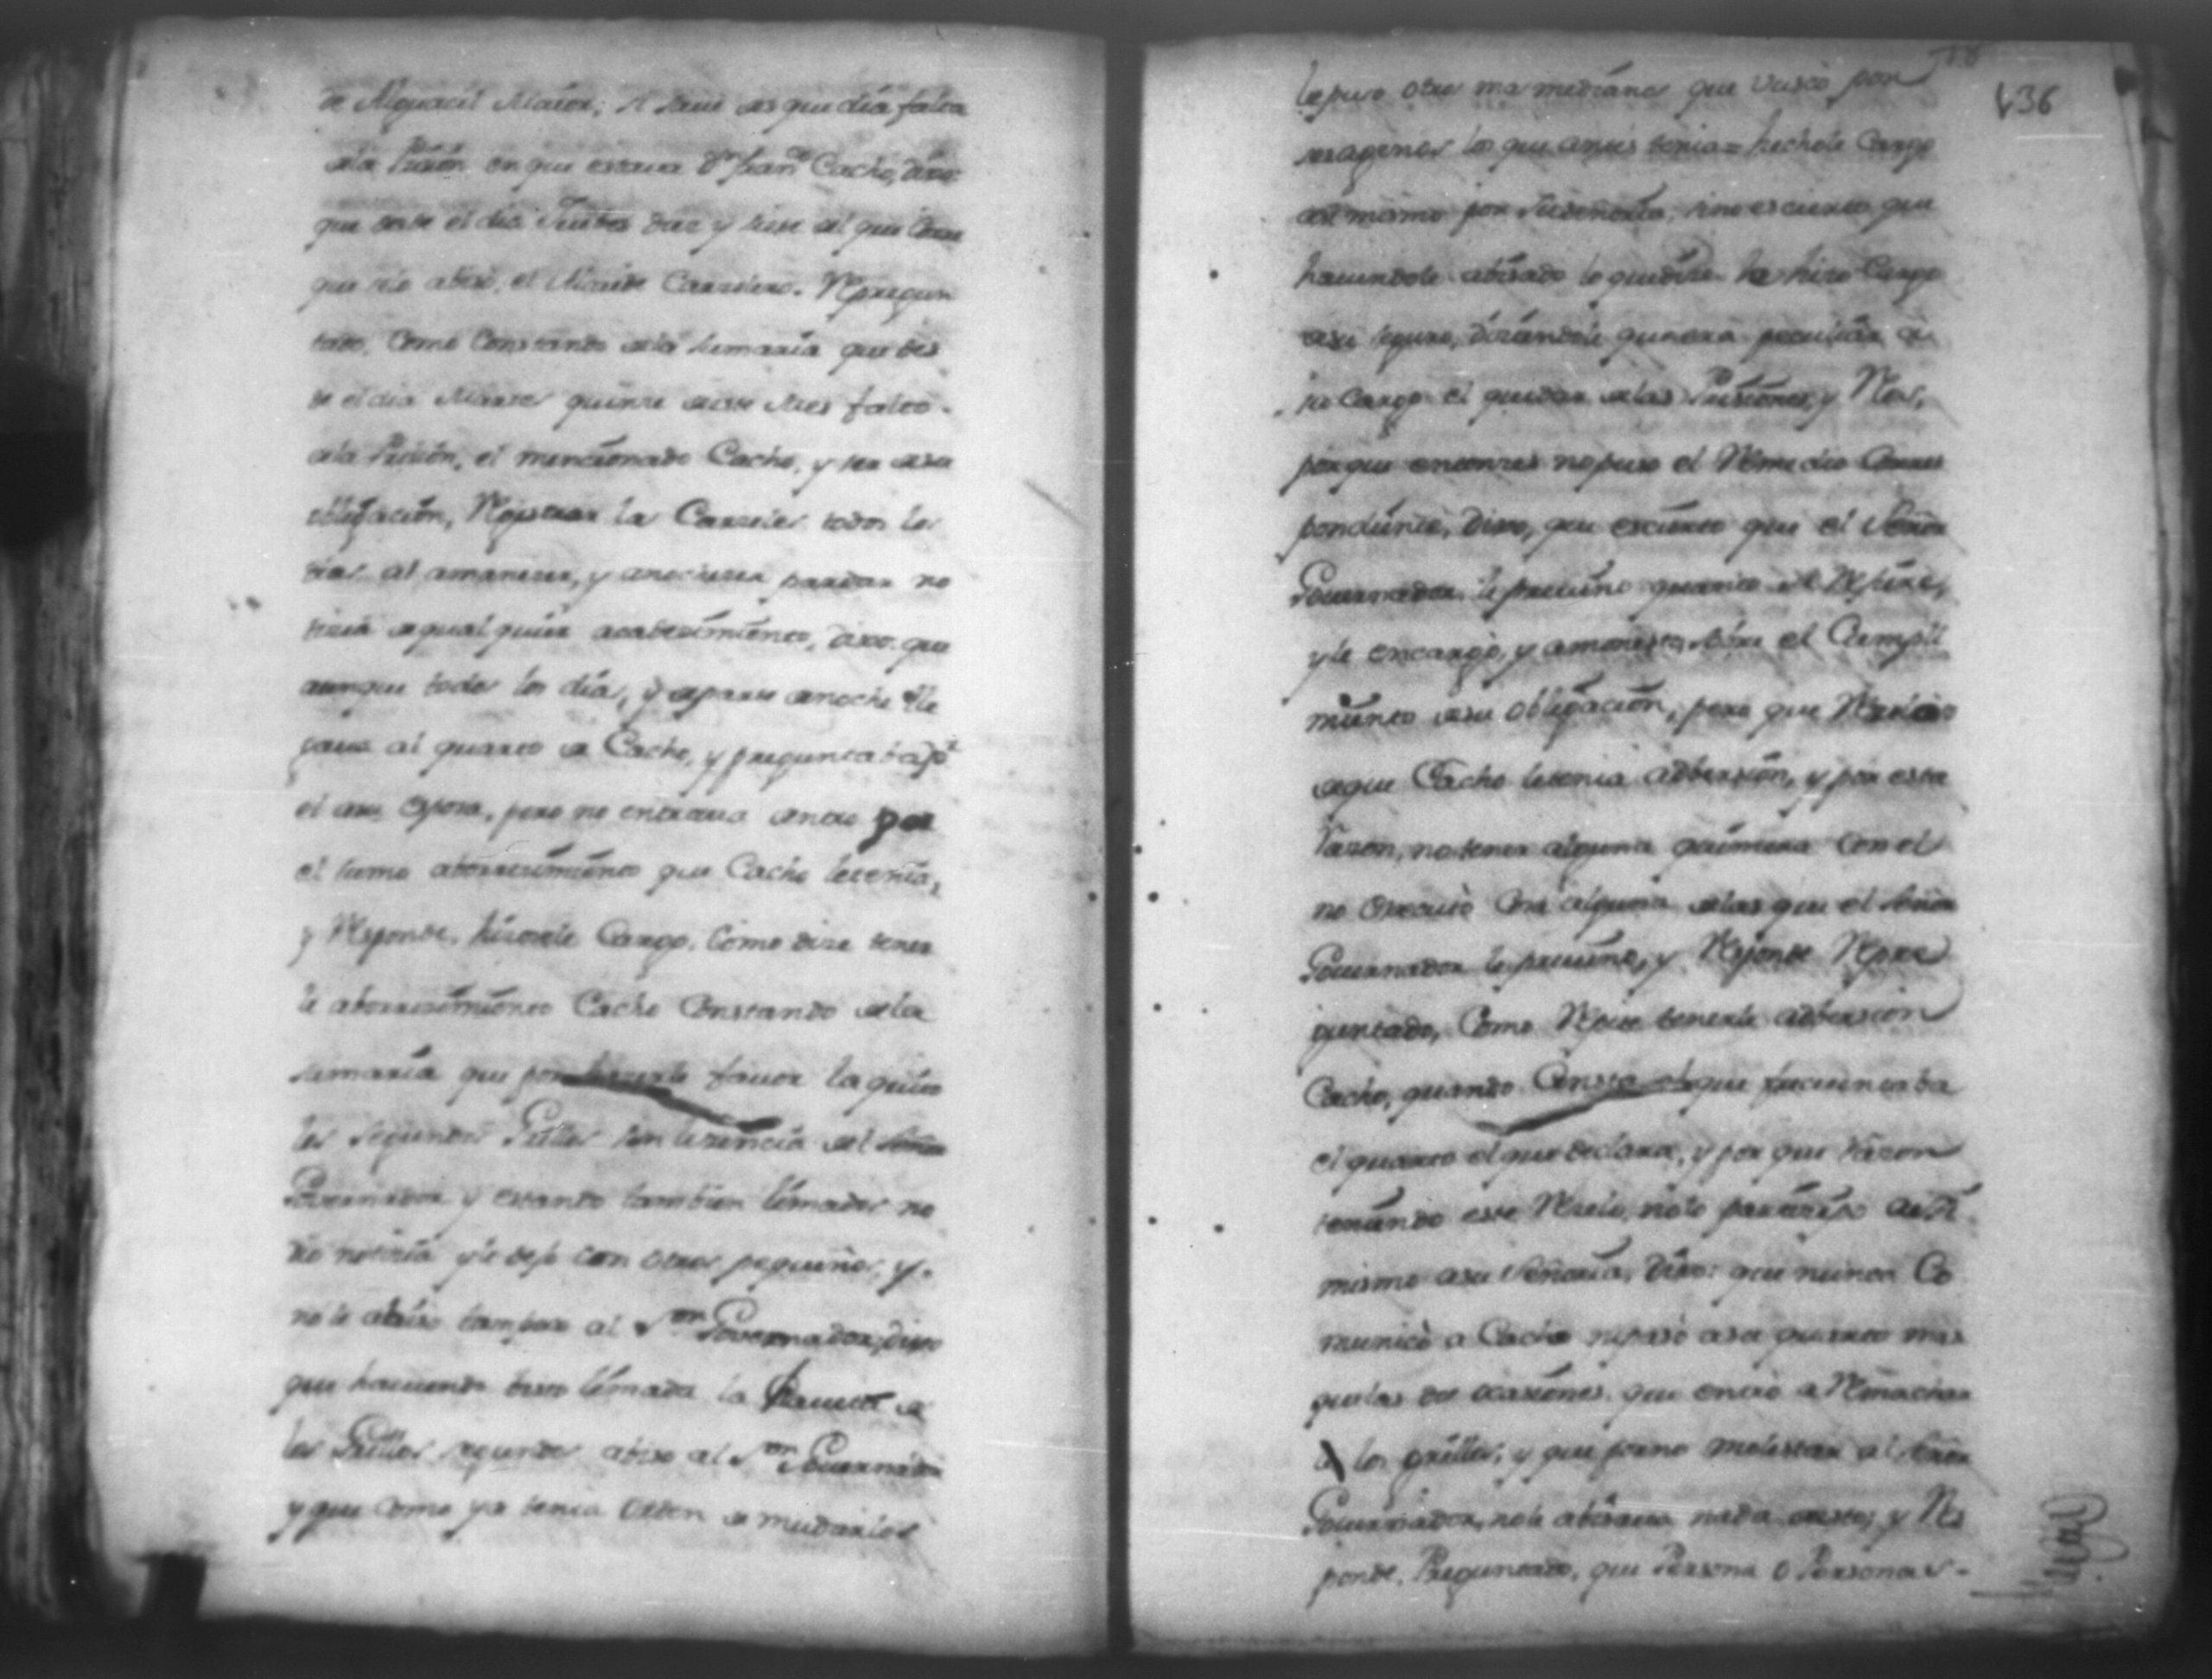 de Alguacil Maior; si save desque dia falta
dela Prision en que estava Dn. Franco. Cacho, dixo:
que desde el dia Jueves diez y siete del que Corre
que dio abiso, el Alcaide Carzelero. Repregun
tado, Como Constando dela Sumaria que des
de el dia Martes quinze deste Mes falto
dela Prision, el mencionado Cacho, y ser desu
obligacion, Registrar las Carzeles todos los
dias al amanezer, y anochezer para dar no
tizia dequalquier acabezimiento, dixo que
aunque todos los dias, y aparte denoche lle
gava al quarto de Cacho, y preguntaba pr.
el asu Esposa, pero no entrava dentro por
el sumo aborrezimiento que Cacho letenia,
y Responde, hizosele Cargo, Como dize tener
le aborrezimiento Cacho Constando dela
sumaria que por hazerle favor la quito
los segundos Grillos sin lizencia del Señor
Governador y estando tambien limados no
dio notizia y le dejo con otros pequeños, y
no le abiso tampoco al Sor. Governador, dixo
que haviendo visto limada la chaveta de
los Grillos segundos abiso al Sor. Governador
y que como ya tenia orden de mudarlos
136
le puso otros mas medianos que busco por
ser agenos los que antes tenia = hechole Cargo
asi mismo por Suseñoria, sino es cierto, que
haviendole abisado lo que dize le hizo Cargo
desu seguro, diziendole que era peculiar de
su Cargo el cuidar delas Prisiones, y Reos,
por que entonzes no puso el Remedio Corres
pondiente, Dixo, que es cierto que el Señor
Governador le previno quanto se le Refiere,
y le encargo, y amonesto sobre el Cumpli
miento desu obligacion, pero que Rezeloso
deque Cacho letenia adbersion, y por esta
Razon, no tener alguna quimera con el
no executo Cosa alguna delas que el Señor
Governador le previno, y Responde Repre
guntado, Como Rezive tenerle adbersion
Cacho, quando Consta el que frecuentaba
el quarto el que declara, y por que Razon
teniendo este Rezelo, no lo partizipo asi
mismo asu Señoria, Dixo: que nunca Co
munico a Cacho ni paso asu quarto mas
que las dos ocasiones que entro a Remachar
le los grillos, y que por no molestar al Señor
Governador, no le abisava nada desto; y Res
ponde. Preguntado, que Persona o Personas